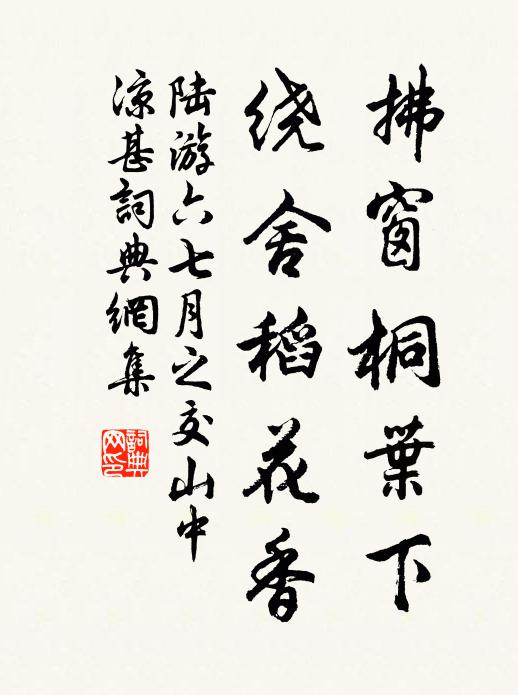 拂窗桐葉下
绕舍稻花香
陆游六七月之交山中
凉甚詞典網集
詞典
网印